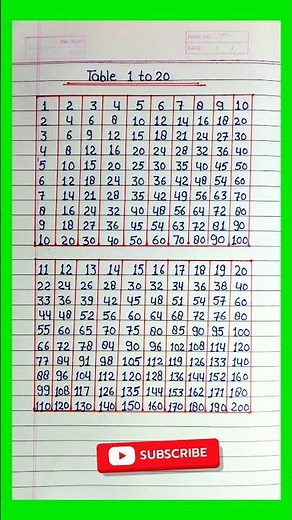 PAGE NO.
DATE: / /
Table 1 to 20
1 2 3 4 5 6 7 8 9 10
2 4 6 8 10 12 14 16 18 20
3 6 9 12 15 18 21 24 27 30
4 8 12 16 20 24 28 32 36 40
5 10 15 20 25 30 35 40 45 50
6 12 18 24 30 36 42 48 54 60
7 14 21 28 35 42 49 56 63 70
8 16 24 32 40 48 56 64 72 80
9 18 27 36 45 54 63 72 81 90
10 20 30 40 50 60 70 80 90 100
11 12 13 14 15 16 17 18 19 20
22 24 26 28 30 32 34 36 38 40
33 36 39 42 45 48 51 54 57 60
44 48 52 56 60 64 68 72 76 80
55 60 65 70 75 80 85 90 95 100
66 72 78 84 90 96 102 108 114 120
77 84 91 98 105 112 119 126 133 140
88 96 104 112 120 128 136 144 152 160
99 108 117 126 135 144 153 162 171 180
110 120 130 140 150 160 170 180 190 200
SUBSCRIBE